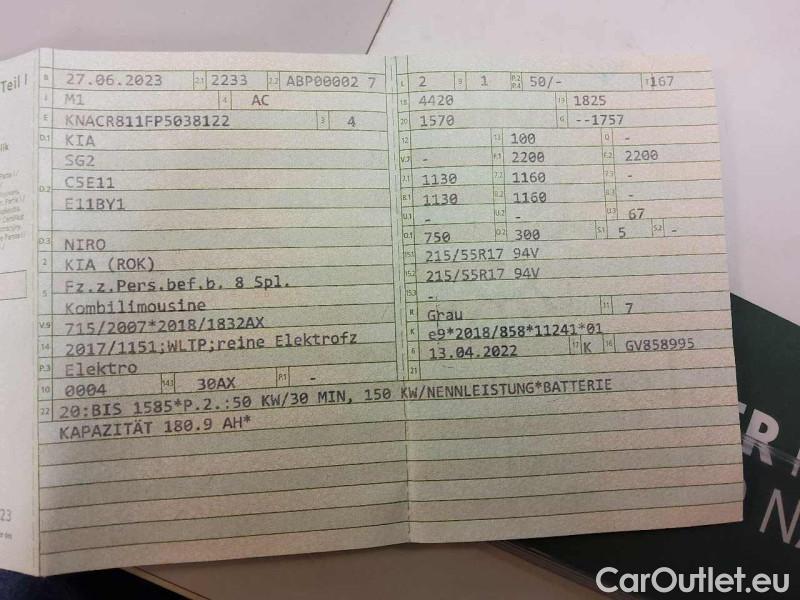 Teil I
B 27.06.2023 2.1 2233 2.2 ABP00002 7
J M1 4 AC
E KNACR811FP5038122 3 4
D.1 KIA
SG2
D.2 C5E11
E11BY1
D.3 NIRO
2 KIA (ROK)
5 Fz.z.Pers.bef.b. 8 Spl.
Kombilimousine
V.9 715/2007*2018/1832AX
14 2017/1151;WLTP;reine Elektrofz
P.3 Elektro
10 0004 14.1 30AX P.1 -
22 20:BIS 1585*P.2.:50 KW/30 MIN, 150 KW/NENNLEISTUNG*BATTERIE
KAPAZITÄT 180.9 AH*
L 2 9 1 P.2 P.4 50/- T 167
18 4420 19 1825
20 1570 G --1757
12 13 100 Q -
V.7 - F.1 2200 F.2 2200
7.1 1130 7.2 1160 7.3 -
8.1 1130 8.2 1160 8.3 -
U.1 - U.2 - U.3 67
O.1 750 O.2 300 S.1 5 S.2 -
15.1 215/55R17 94V
15.2 215/55R17 94V
15.3 -
R Grau 11 7
K e9*2018/858*11241*01
6 13.04.2022 17 K 16 GV858995
21
23
CarOutlet.eu